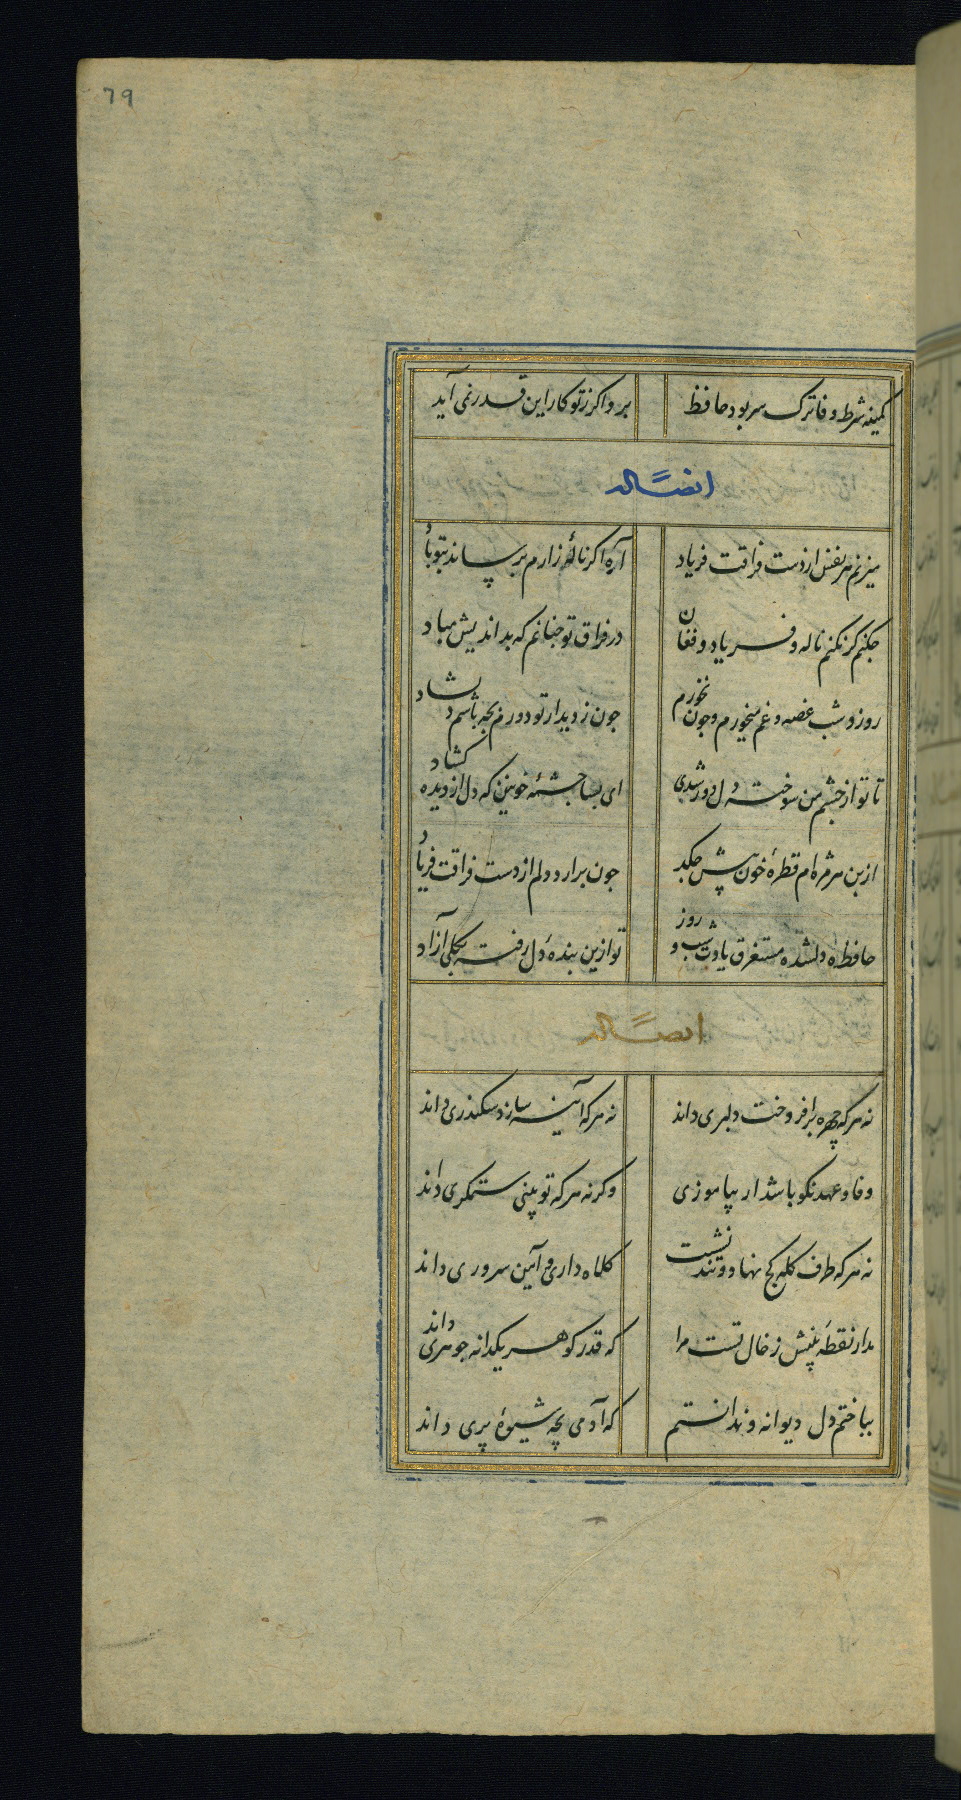 79
کمینه شرط وفا ترک سر بود حافظ
برو اکر ز تو کار این قدر نمی آید
ایضاً له
میزنم هر نفس از دست فراقت فریاد
آه اکر نالهٔ زارم نرساند بتو باد
چکنم کر نکنم ناله و فریاد و فغان
در فراق تو چنانم که بداندیش مباد
روز و شب غصه و غم میخورم و چون نخورم
چون ز دیدار تو دورم بچه باشم دلشاد
تا تو از چشم من سوخته دل دور شدی
ای بسا چشمهٔ خونین که دل از دیده کشاد
از بن هر مژه ام قطرهٔ خون پیش چکد
چون برارد دلم از دست فراقت فریاد
حافظ دلشده مستغرق یادت شب و روز
تو ازین بندهٔ دل رفته بکلی آزاد
ایضاً له
نه هر که چهره برافروخت دلبری داند
نه هر که آینه سازد سکندری داند
وفا و عهد نکو باشد ار بیاموزی
وکرنه هر که تو بینی ستمکری داند
نه هر که طرف کله کج نهاد و تند نشست
کلاه داری و آیین سروری داند
مدار نقطه بینش ز خال تست مرا
که قدر کوهر یکدانه جوهری داند
بباختم دل دیوانه و ندانستم
که آدمی بچه شیوهٔ پری داند